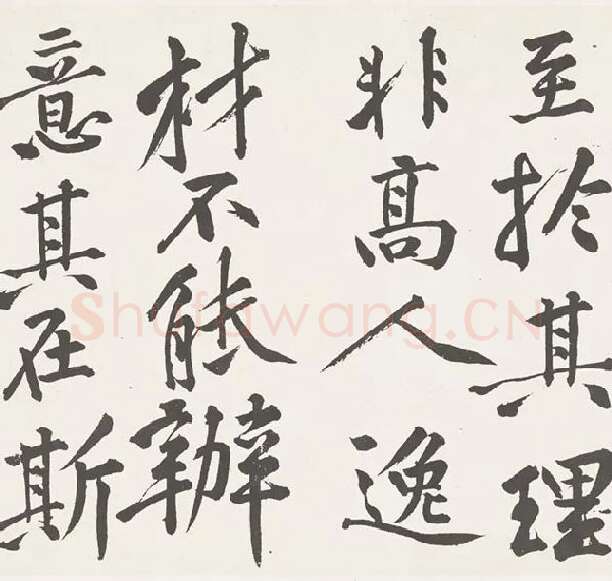 至於其理
非高人逸
材不能辦
意其在斯
Shufawang.CN